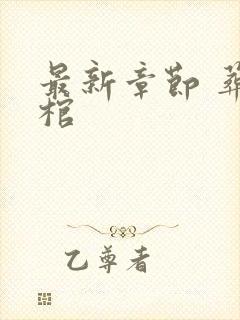 最新章节 葬
棺
乙尊者